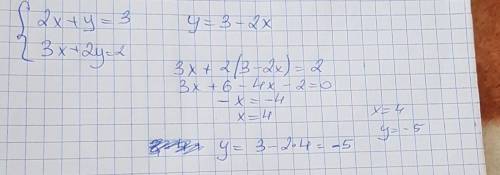 { 2x + y = 3    y = 3 - 2x
3x + 2y = 2
3x + 2(3 - 2x) = 2
3x + 6 - 4x - 2 = 0
-x = -4
x = 4
x = 4
y = -5
y = 3 - 2·4 = -5